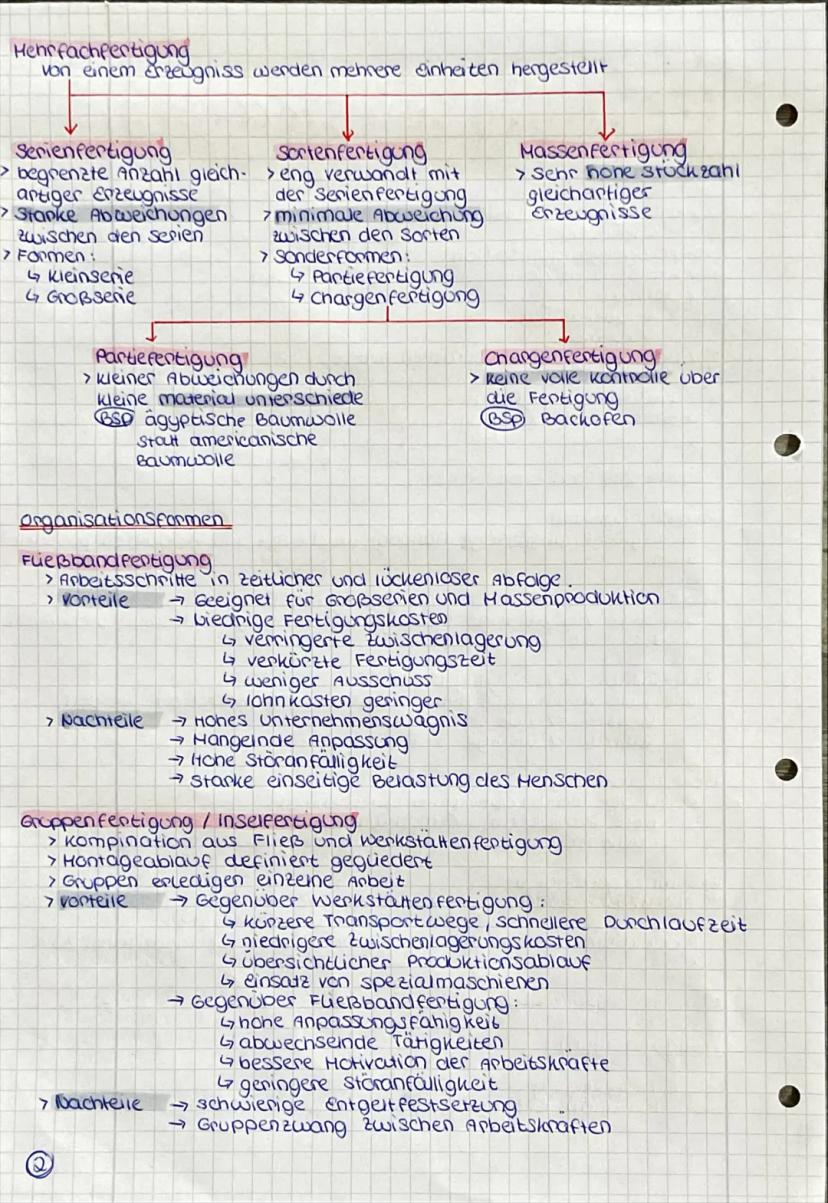 Mehrfachfertigung
von einem Erzeugniss werden mehrere einheiten hergestellt
Serienfertigung
> begrenzte Anzahl gleich-
artiger Erzeugnisse
> Starke Abweichungen
zwischen den Serien
> Formen:
↳ Kleinserie
↳ Großserie
Sortenfertigung
> eng verwandt mit
der Serienfertigung
> minimale Abweichung
zwischen den Sorten
> Sonderformen:
↳ Partiefertigung
↳ Chargenfertigung
Massenfertigung
> Sehr hohe Stückzahl
gleichartiger
Erzeugnisse
Partiefertigung
> kleiner Abweichungen durch
kleine material unterschiede
BSP ägyptische Baumwolle
statt americanische
Baumwolle
Chargenfertigung
> keine volle Kontrolle über
die Fertigung
BSP Backofen
Organisationsformen
Fließbandfertigung
> Arbeitsschritte in zeitlicher und lückenloser Abfolge.
> Vorteile → Geeignet für Großserien und Massenproduktion
→ Niedrige Fertigungskosten
↳ verringerte Zwischenlagerung
↳ verkürzte Fertigungszeit
↳ weniger Ausschuss
↳ lohnkosten geringer
> Nachteile → Hohes Unternehmenswagnis
→ Mangelnde Anpassung
→ Hohe Störanfälligkeit
→ Starke einseitige Belastung des Menschen
Gruppenfertigung / Inselfertigung
> Kompination aus Fließ und Werkstättenfertigung
> Montageablauf definiert gegliedert
> Gruppen erledigen einzelne Arbeit
> Vorteile → Gegenüber Werkstättenfertigung:
↳ kürzere Transportwege, schnellere Durchlaufzeit
↳ niedrigere Zwischenlagerungskosten
↳ übersichtlicher Produktionsablauf
↳ einsatz von spezialmaschienen
→ Gegenüber Fließbandfertigung:
↳ hohe Anpassungsfähigkeit
↳ abwechselnde Tätigkeiten
↳ bessere Motivation der Arbeitskräfte
↳ geringere Störanfälligkeit
> Nachteile → schwierige Entgeltfestsetzung
→ Gruppenzwang zwischen Arbeitskräften
2